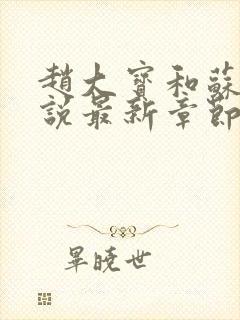 趙大寶和蘇
說最新章節
畢曉世